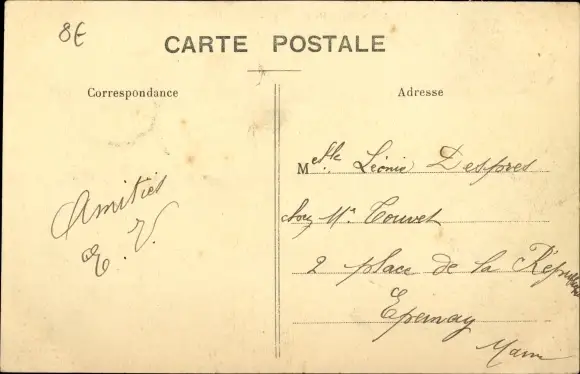 8€
CARTE POSTALE
Correspondance
Adresse
Amitiés
E. V.
Melle Léonie Desprès
chez Mr Touvet
2 place de la République
Epernay
Marne